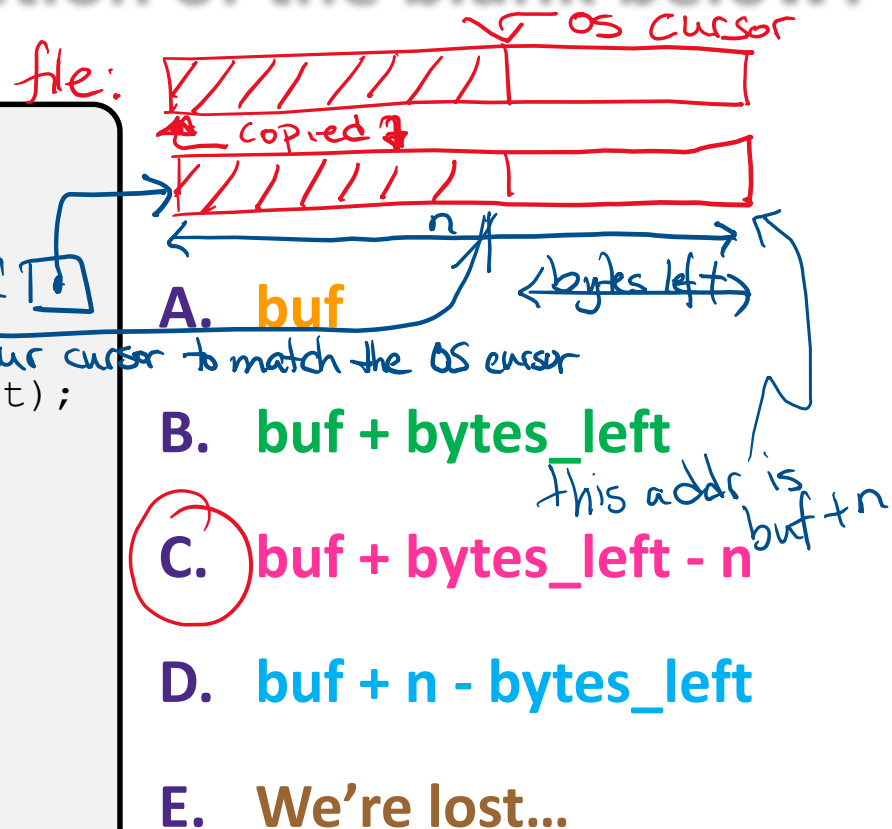 OS cursor
file:
copied
n
bytes left
A. buf
cursor to match the OS cursor
t);
B. buf + bytes_left
this addr is
buf + n
C. buf + bytes_left - n
D. buf + n - bytes_left
E. We're lost...